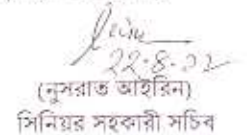 22-8-22
(নুসরাত আইরিন)
সিনিয়র সহকারী সচিব